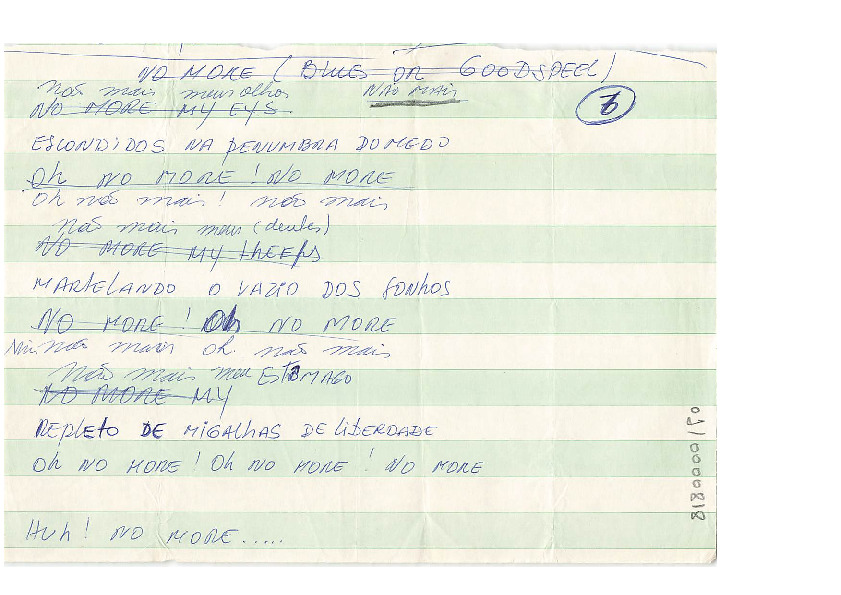 NO MORE (BLUES OR GOODSPEEL)
Não mais meus olhos NÃO MAIS
NO MORE MY EYS
6
ESCONDIDOS NA PENUMBRA DO MEDO
Oh NO MORE! NO MORE
Oh não mais! não mais
Não mais meus (dentes)
NO MORE MY THEEPS
MARTELANDO O VAZIO DOS SONHOS
NO MORE! Oh NO MORE
não mais oh. não mais
Não mais meu ESTOMAGO
NO MORE MY
REPLETO DE MIGALHAS DE LIBERDADE
Oh NO MORE! Oh NO MORE! NO MORE
HUh! NO MORE.....